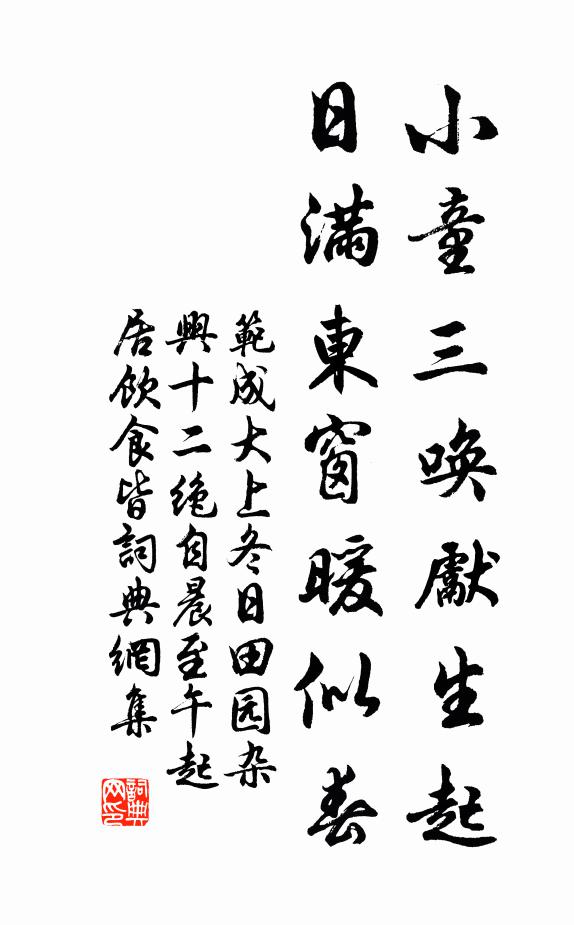 小童三喚獻生起
日滿東窗暖似春
範成大上冬日田园杂
興十二絶自晨至午起
居飲食皆詞典網集
詞典
网印